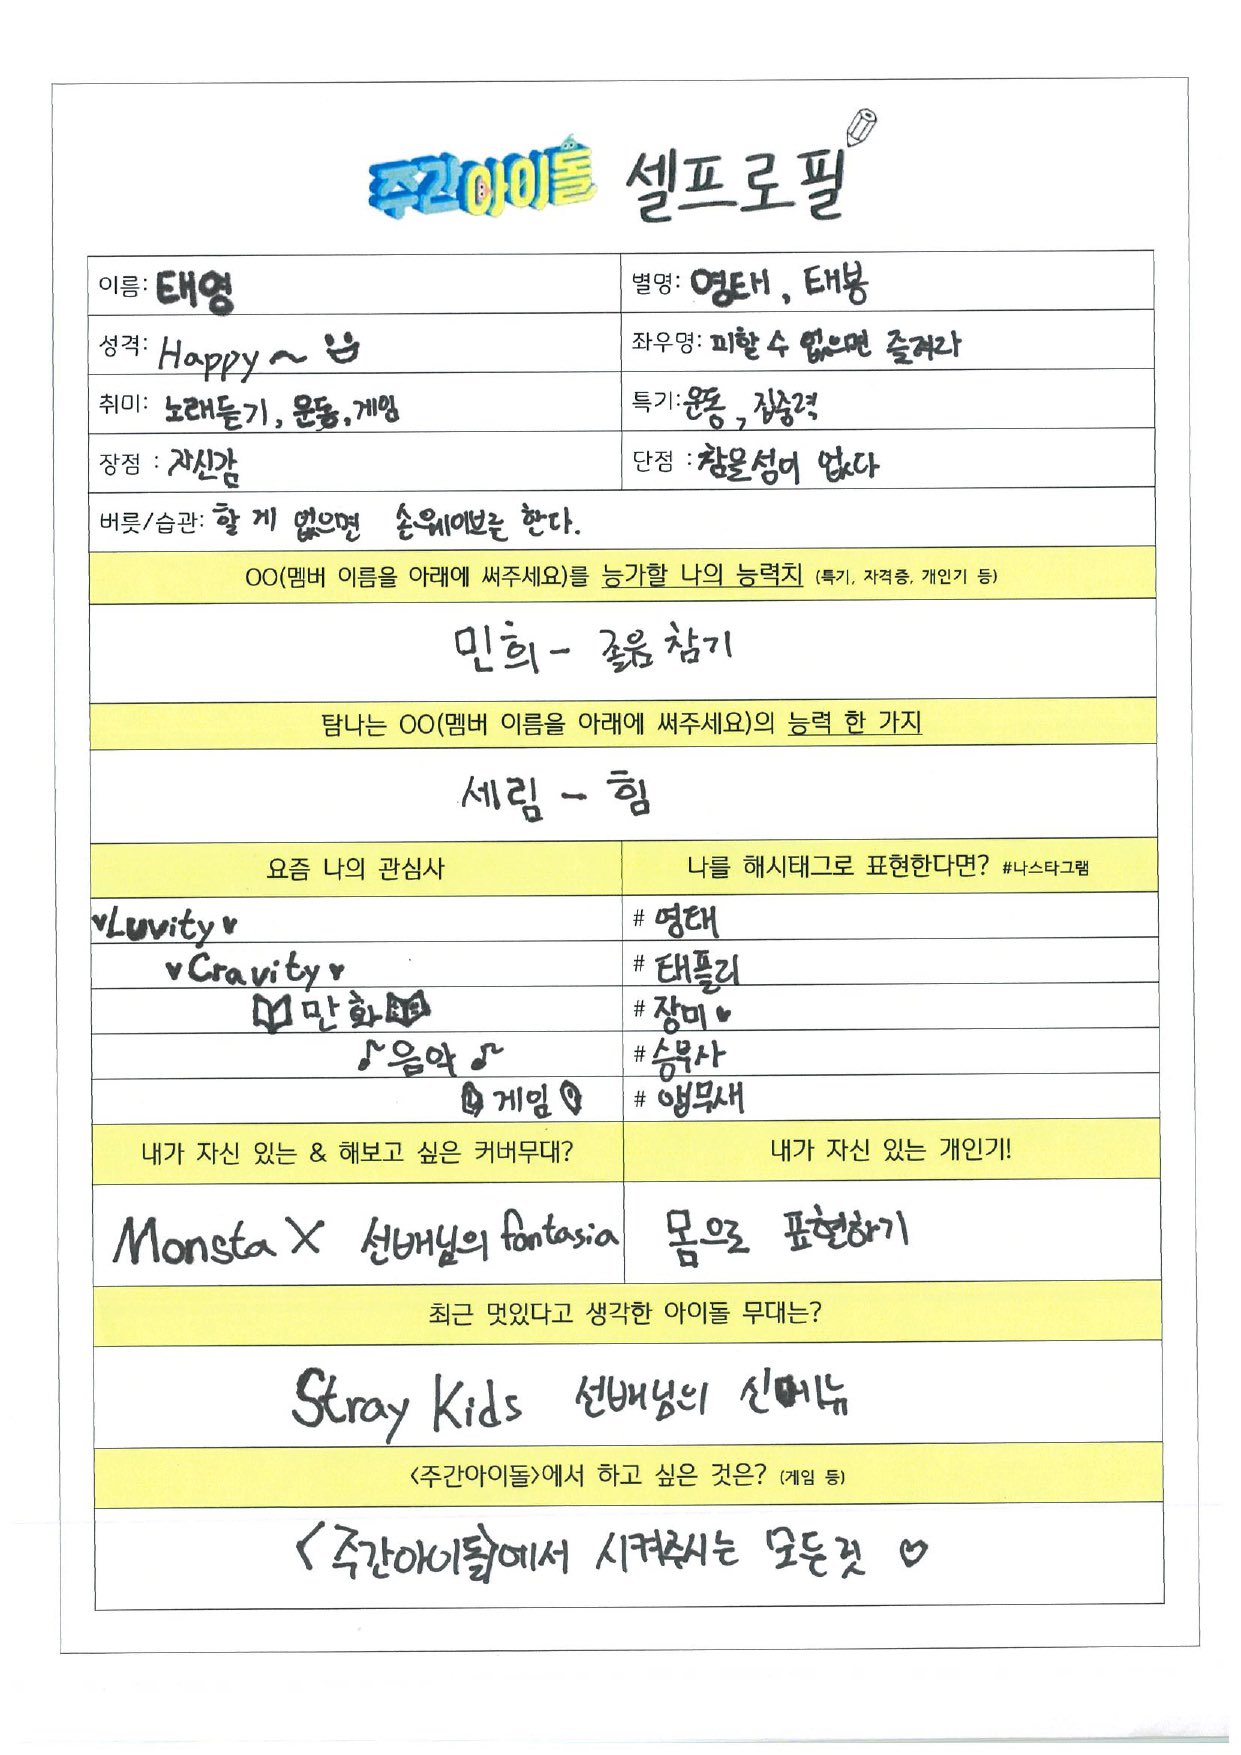 주간아이돌 셀프로필
이름: 태영
별명: 영태, 태봉
성격: Happy~
좌우명: 피할 수 없으면 즐겨라
취미: 노래듣기, 운동, 게임
특기: 운동, 집중력
장점 : 자신감
단점 : 참을성이 없다
버릇/습관: 할 게 없으면 손웨이브를 한다.
OO(멤버 이름을 아래에 써주세요)를 능가할 나의 능력치 (특기, 자격증, 개인기 등)
민희 - 졺음 참기
탐나는 OO(멤버 이름을 아래에 써주세요)의 능력 한 가지
세림 - 힘
요즘 나의 관심사
나를 해시태그로 표현한다면? #나스타그램
♥Luvity♥
# 영태
♥Cravity♥
# 태플리
만화
# 장미♥
♪음악♪
# 승무사
게임
# 앱무새
내가 자신 있는 & 해보고 싶은 커버무대?
내가 자신 있는 개인기!
Monsta X 선배님의 fantasia
몸으로 표현하기
최근 멋있다고 생각한 아이돌 무대는?
Stray Kids 선배님의 신메뉴
<주간아이돌>에서 하고 싶은 것은? (게임 등)
<주간아이돌>에서 시켜주시는 모든것 ♡